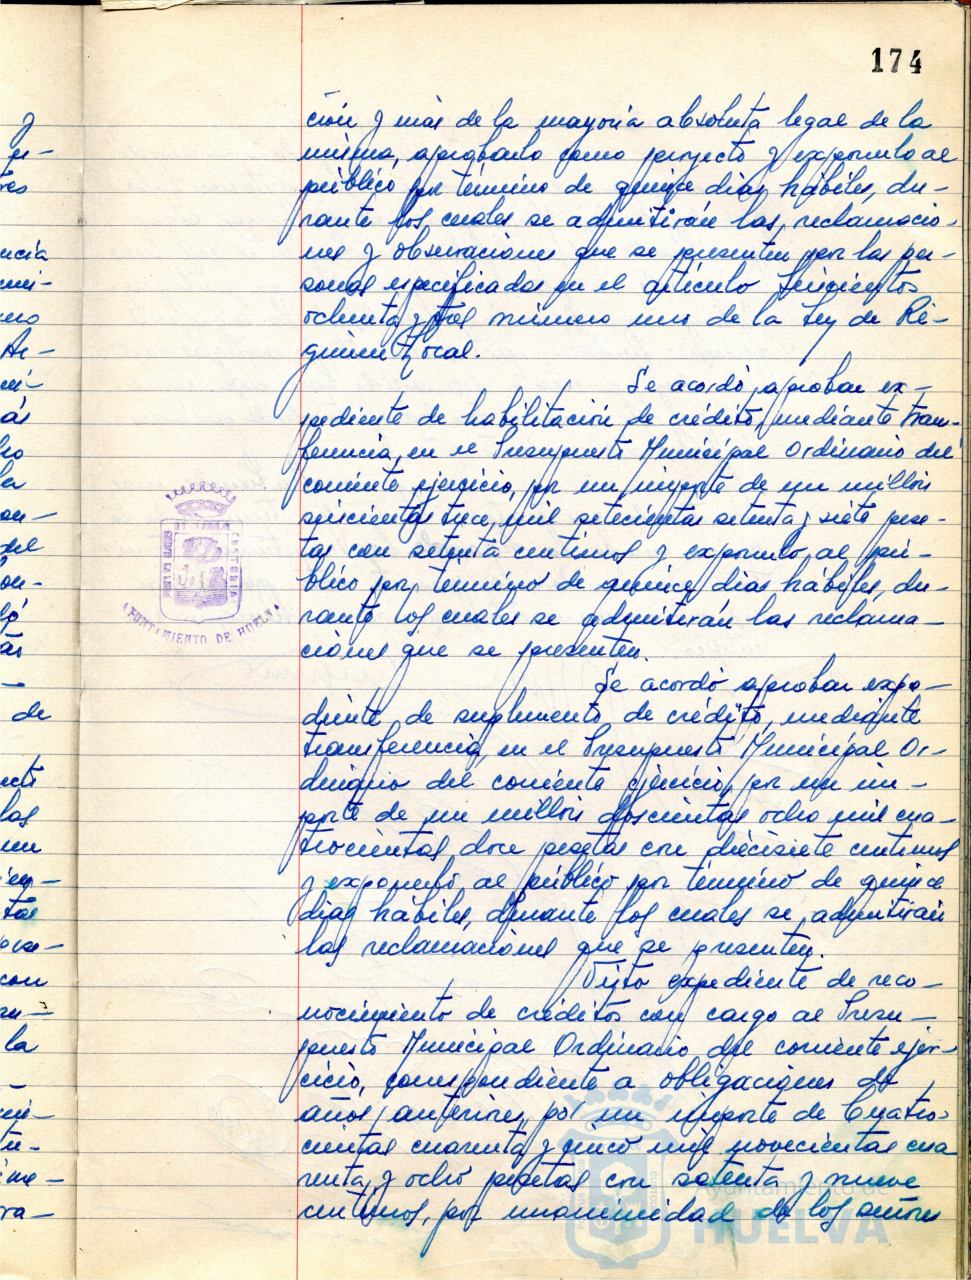 174
ción y más de la mayoría absoluta legal de la
misma, aprobarlo como proyecto y exponerlo al
público por término de quince días hábiles, du-
rante los cuales se admitirán las reclamacio-
nes y observaciones que se presenten por las per-
sonas especificadas en el artículo seiscientos
ochenta y tres número uno de la Ley de Ré-
gimen Local.
Se acordó aprobar ex-
pediente de habilitación de crédito, mediante trans-
ferencia, en el Presupuesto Municipal Ordinario del
corriente ejercicio, por un importe de un millón
seiscientas trece mil setecientas setenta y siete pese-
tas con setenta céntimos y exponerlo al pú-
blico por término de quince días hábiles, du-
rante los cuales se admitirán las reclama-
ciones que se presenten.
Se acordó aprobar expe-
diente de suplemento de crédito, mediante
transferencia, en el Presupuesto Municipal Or-
dinario del corriente ejercicio, por un im-
porte de un millón doscientas ocho mil cua-
trocientas doce pesetas con diecisiete céntimos
y exponerlo al público por término de quince
días hábiles, durante los cuales se admitirán
las reclamaciones que se presenten.
Visto expediente de reco-
nocimiento de créditos con cargo al Presu-
puesto Municipal Ordinario del corriente ejer-
cicio, correspondiente a obligaciones de
años anteriores, por un importe de Cuatro-
cientas cuarenta y cinco mil novecientas cua
renta y ocho pesetas con setenta y nueve
céntimos, por unanimidad de los señores
AYUNTAMIENTO DE HUELVA
Ayuntamiento de
HUELVA